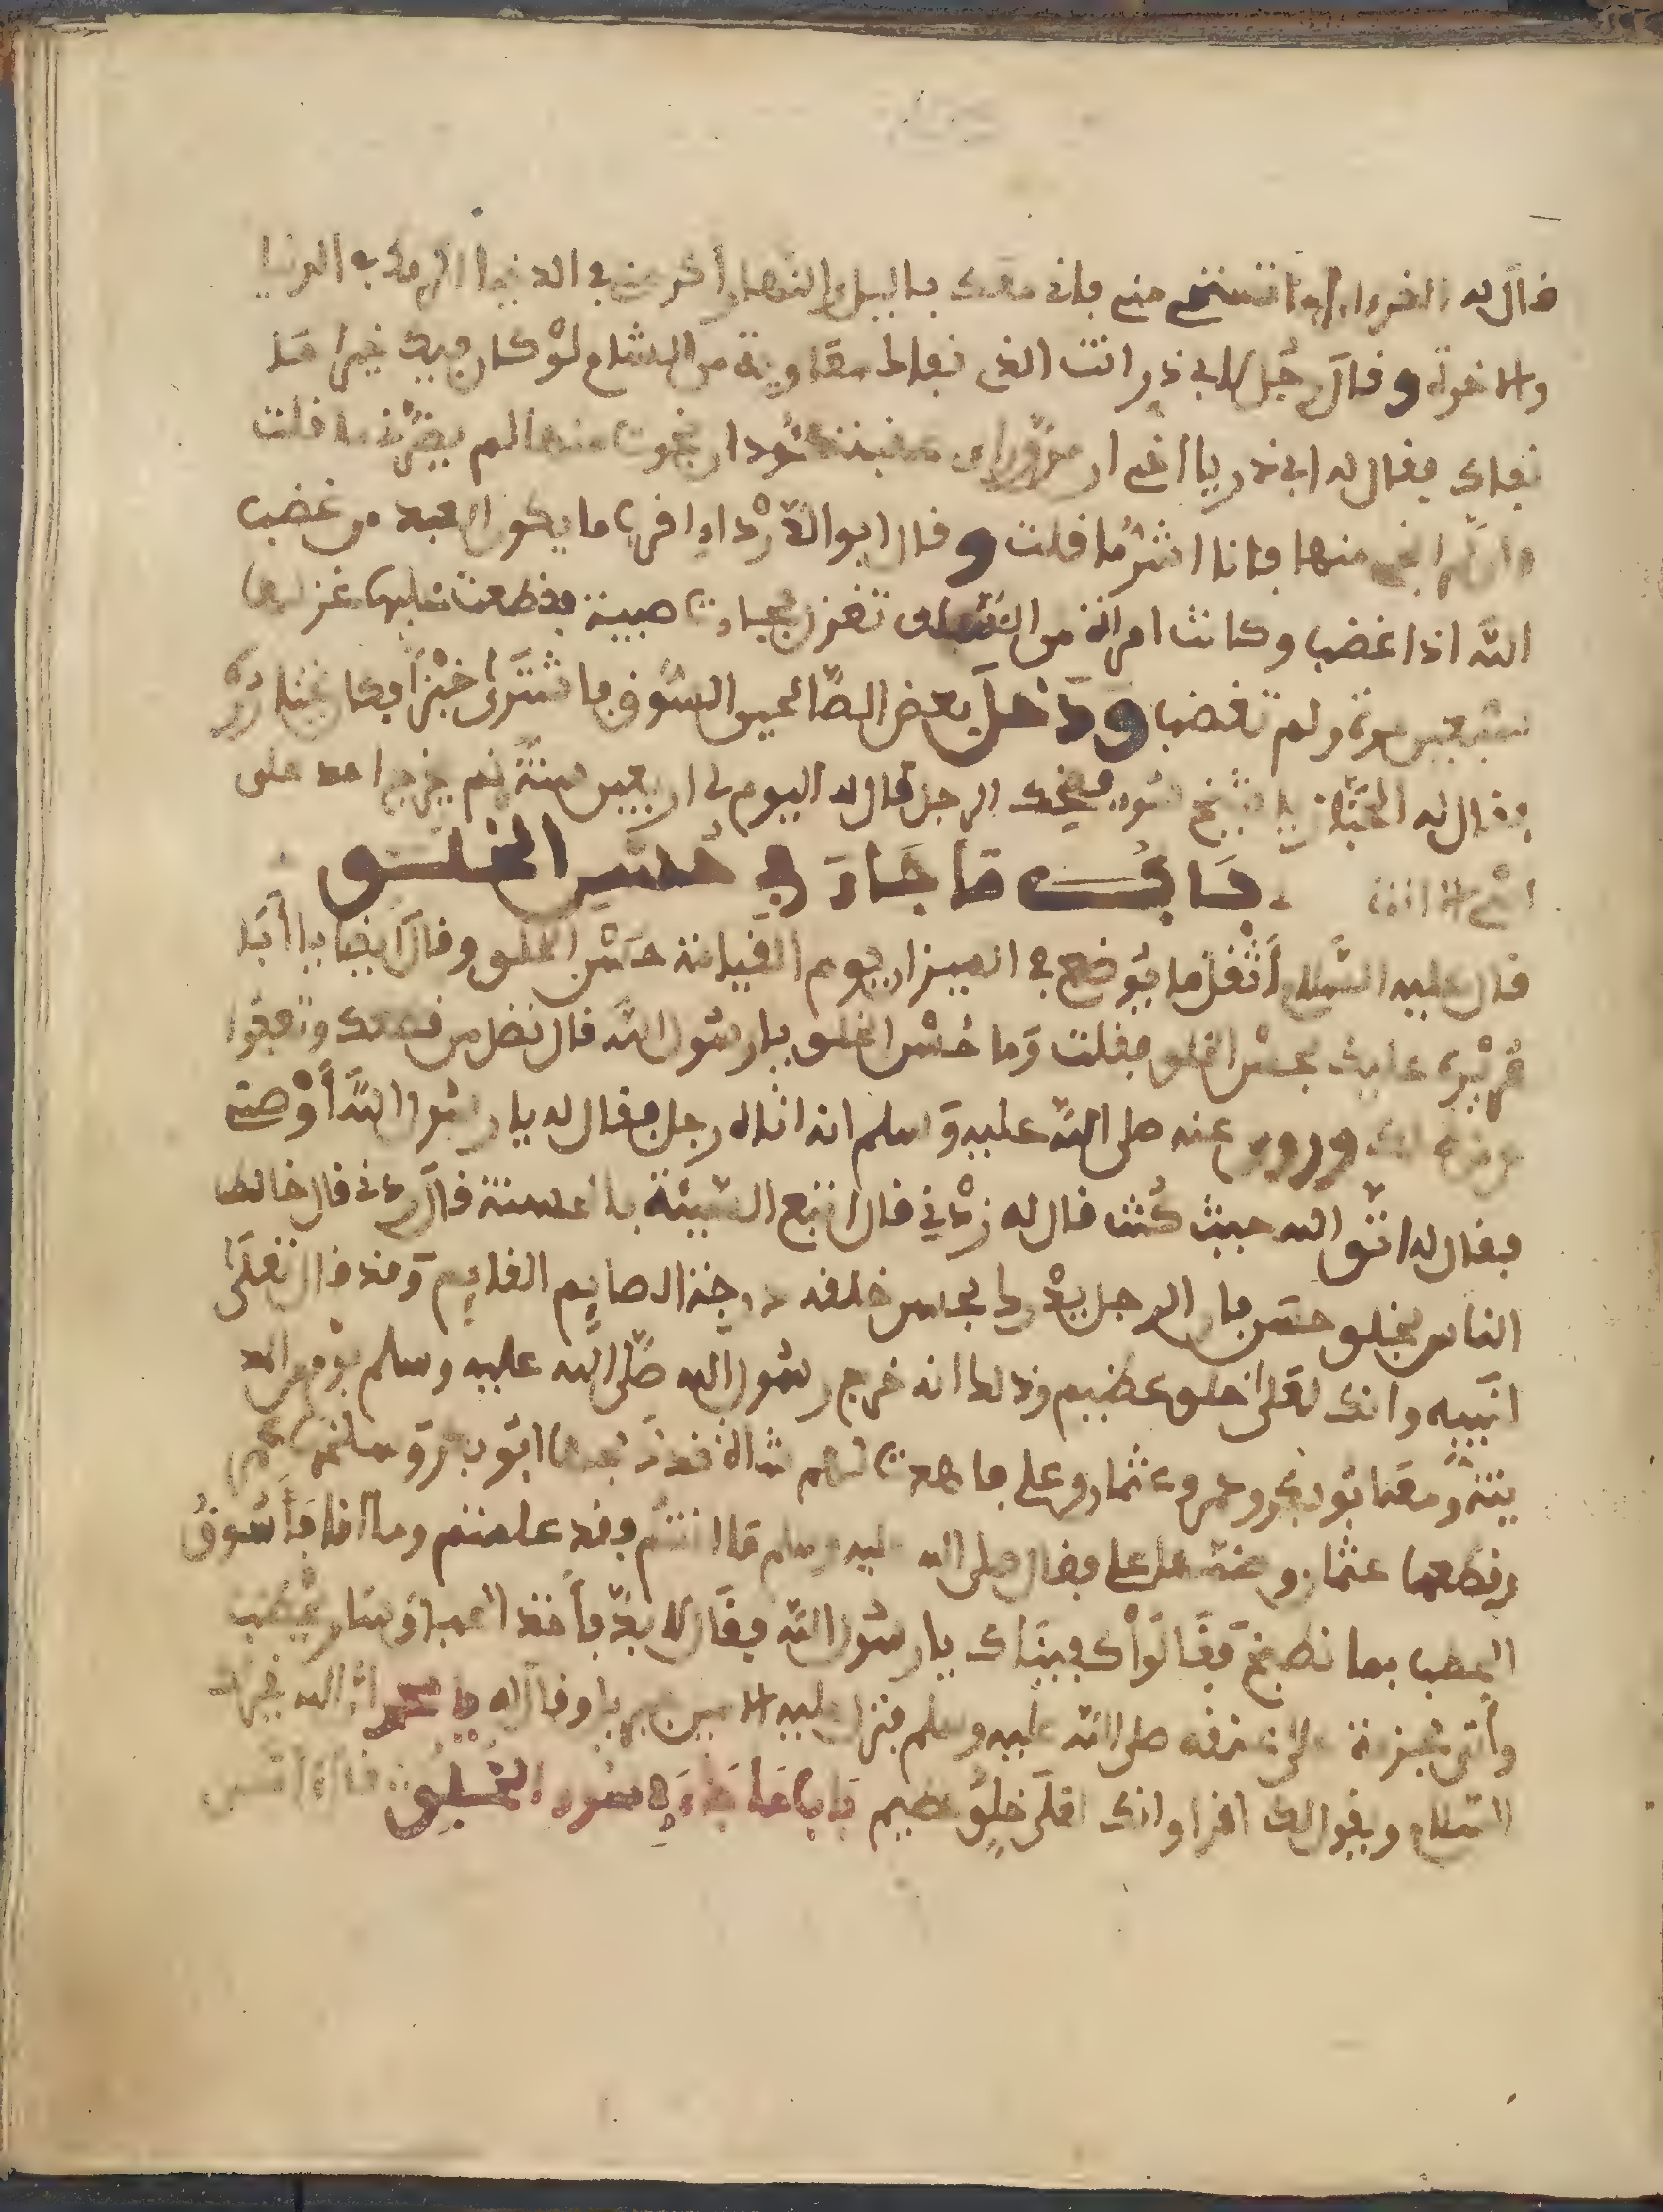 قال له القرءان اما تستحي مني فإني معك بالليل والنهار في الدنيا
والاخرة وقال رجل لابي ذر انت الذي نفاك معاوية من الشام لو كان فيك خيرا ما
نفاك فقال له ابي ذر يا اخي ان من وراي عقبة كئود ان نجوت منها لم يضرني ما قلت
وان لم انج منها فانا اشر مما قلت وقال ابو الدرداء اقرب ما يكون العبد من غضب
الله اذا غضب وكانت امراة من السلف تغزل فجاءت صبية فقطعت عليها غزلها
سبعين مرة ولم تغضب ودخل بعض الصالحين السوق فاشترى خبزا
فقال له الخباز يا شيخ سوء فضحك الرجل قال له اليوم لي اربعين سنة لم يخرج احد على
اسمي الا انت باب ما جاء في حسن الخلق
قال عليه السلام أثقل ما يوضع في الميزان يوم القيامة حسن الخلق وقال ايضا يا أبا
هريرة عليك بحسن الخلق فقلت وما حسن الخلق يا رسول الله قال تصل من قطعك وتعفوا
عن ظلمك وروي عنه صلى الله عليه وسلم انه اتاه رجل فقال له يا رسول الله أوصني
فقال له اتق الله حيث كنت قال له زدني قال اتبع السيئة بالحسنة قال زدني قال خالط
الناس بخلق حسن فإن الرجل يدرك بحسن خلقه درجة الصايم القايم وقد قال تعلى
لنبيه وانك لعلى خلق عظيم وذلك انه خرج رسول الله صلى الله عليه وسلم يوم الى
ومعنا ابو بكر وعمر وعثمان وعلي فاهديت لهم شاة فذبحها ابو بكر وسلخها عمر
وقطعها عثمان وعلي فقال صلى الله عليه وسلم اما انتم فقد عملتم وما انا فأسوق
الحطب بما نطبخ فقالوا كفيناك يا رسول الله فقال لا بد فأخذ الحبل وسار يحطب
وأتى بحزمة على عنقه صلى الله عليه وسلم فنزل عليه الامين جبريل وقال له يا محمد الله يقرئك
السلام ويقول لك اقرا وانك لعلى خلق عظيم باب ما جاء في سوء الخلق قال انس